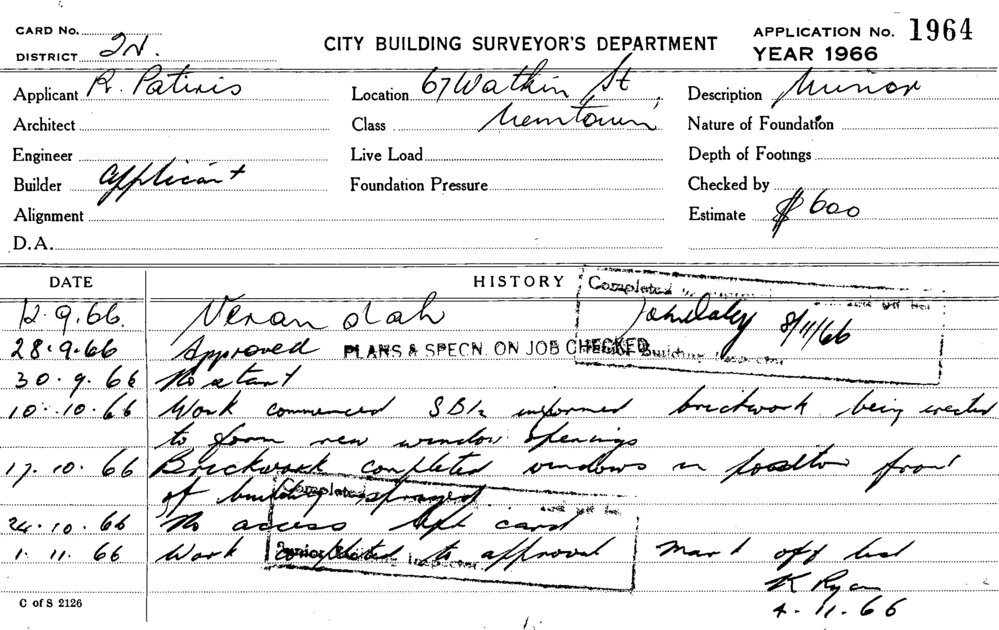 CARD No.
DISTRICT 2N.
CITY BUILDING SURVEYOR'S DEPARTMENT
APPLICATION No. 1964
YEAR 1966
Applicant R. Patiris
Location 67 Watkin St
Description Minor
Architect
Class Newtown
Nature of Foundation
Engineer
Live Load
Depth of Footings
Builder Applicant
Foundation Pressure
Checked by
Alignment
Estimate $600
D.A.
DATE HISTORY
Completed
12.9.66. Verandah
John Daley 8/11/66
28.9.66 Approved PLANS & SPECN. ON JOB CHECKED
Building Inspector
30.9.66 No start
10.10.66 Work commenced informed brickwork being erected
to form new window openings
17.10.66 Brickwork completed windows in position front
of building
Completed
24.10.66 No access left card
1.11.66 Work completed to approval Mark off list
Senior Building Inspector
K Ryan
4.11.66
C of S 2126